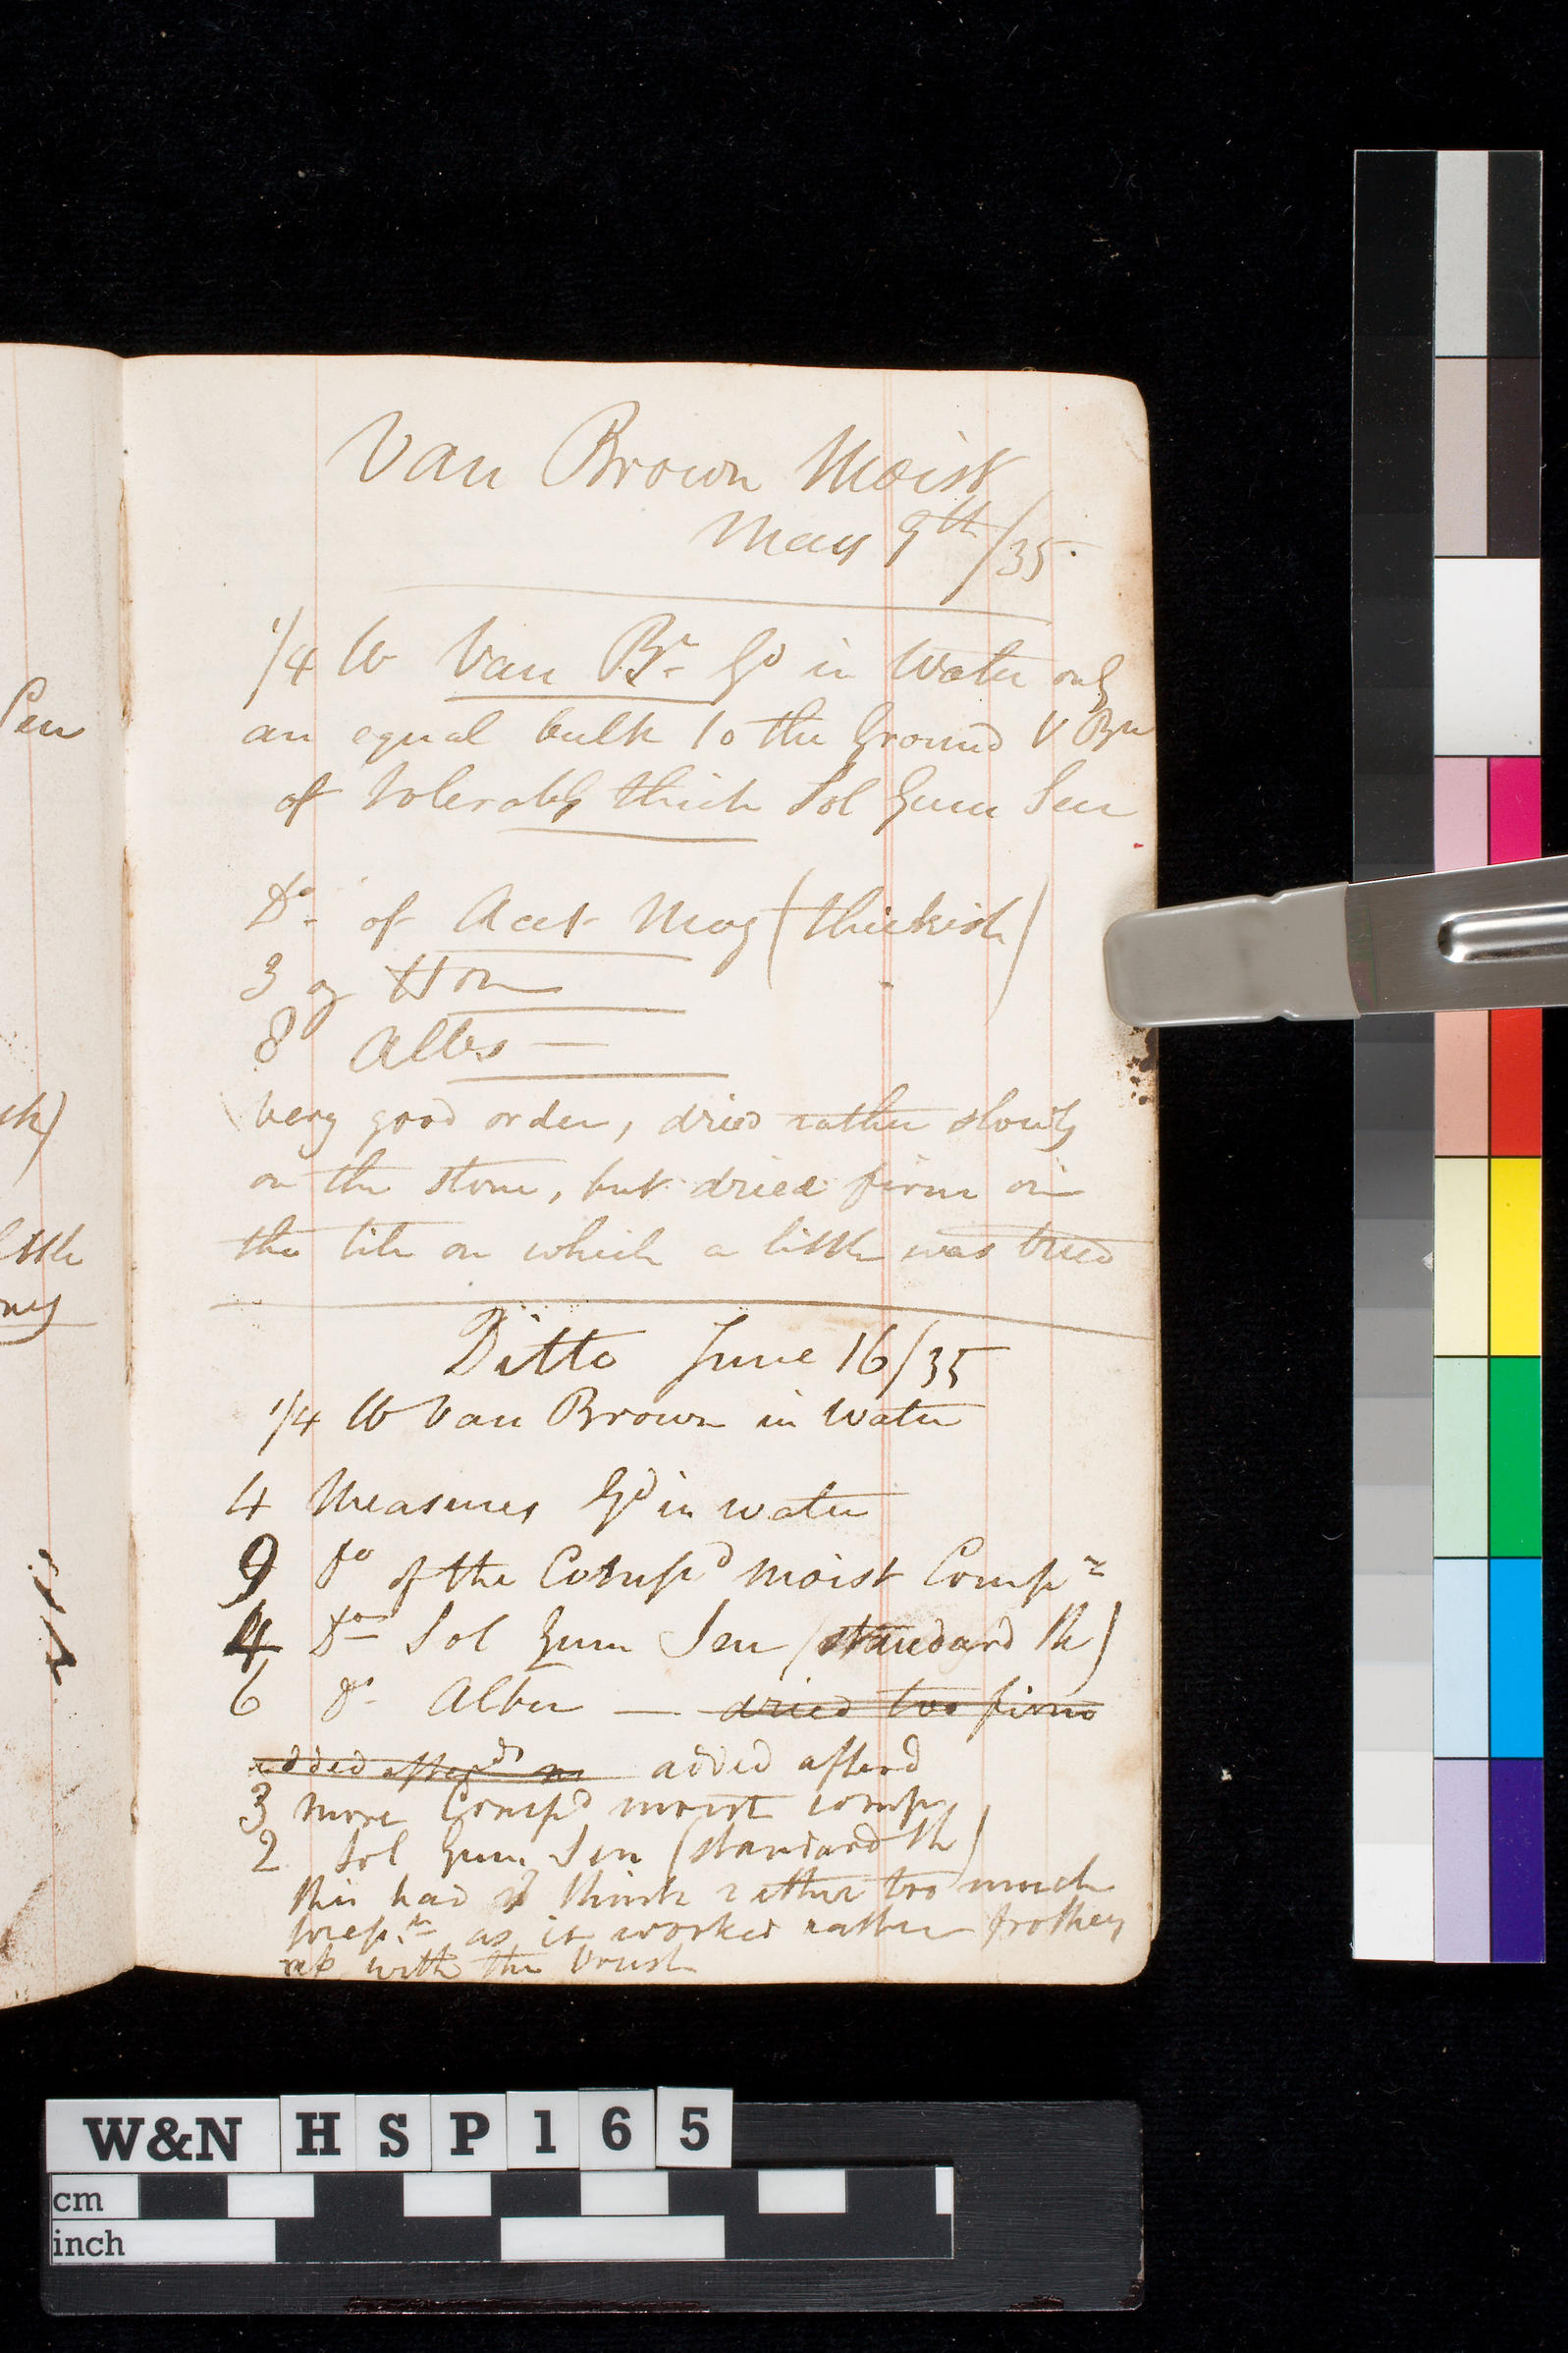 Van Brown Moist
May 9th/35.
1/4 lb Van Br. Gd in Water only
an equal bulk to the Ground V Brn
of tolerably thick Sol Gum Sen
Do. of Acet Mag (thickish)
3 oz Hon
8 Albs —
very good order, dried rather slowly
on the stone, but dried firm on
the tile on which a little was tried
Ditto June 16/35
1/4 lb Van Brown in Water
4 Measures Gd in water
9 do of the Compd Moist Compn
4 Do Sol Gum Sen (standard th)
6 do. Albn — dried too firm
added afterds added afterd
3 more Compd moist comp
2 Sol Gum Sen (standard th)
this had I think rather too much
prepn as it worked rather frothey
up with the brush
Sen
ck)
little
W&N H S P 1 6 5
cm
inch